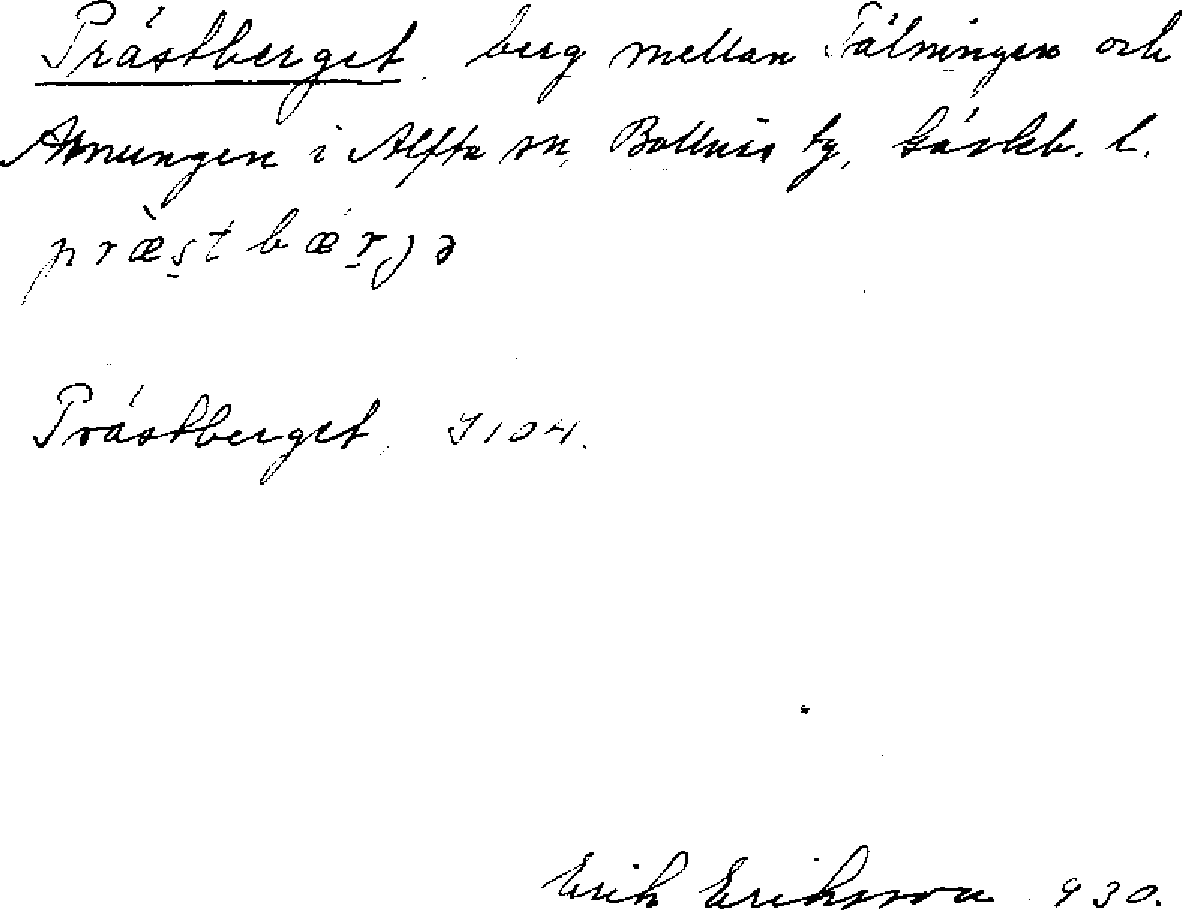 Prästberget, berg mellan Tälningen och
Amungen i Alfta sn, Bollnäs tg, Gävleb. l.
præ̀stbæ̀rjə
Prästberget, J 104.
Erik Eriksson 930.